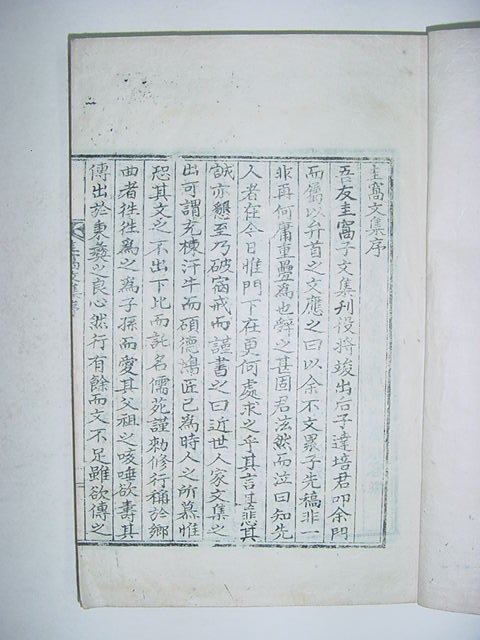 圭窩文集序
吾友圭窩子文集刊役將竣出后子達培君叩余門
而屬以弁首之文應之曰以余不文累子先稿非一
非再何庸重疊爲也辭之甚固君泫然而泣曰知先
人者在今日惟門下在更何處求之乎其言悲其
誠亦懇至乃破宿戒而謹書之曰近世人家文集之
出可謂充棟汗牛而碩德鴻匠已爲時人之所慕惟
恐其文之不出下此而託名儒苑謹勅修行稱於鄕
曲者徃徃爲之爲子孫而愛其父祖之咳唾欲壽其
傳出於秉彛之良心然行有餘而文不足雖欲傳之
文集序